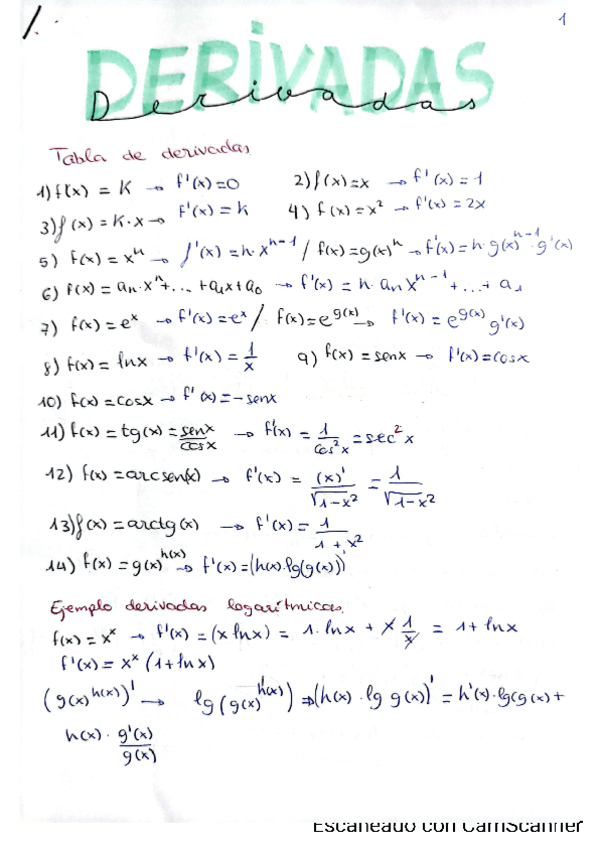 1
DERIVADAS
Derivadas
Tabla de derivadas
1) f(x) = K → f'(x)=0 2) f(x)=x → f'(x) = 1
3) f(x) = K·x → f'(x) = K 4) f(x)=x² → f'(x) = 2x
5) f(x) = xⁿ → f'(x) = n·xⁿ⁻¹ / f(x)=g(x)ⁿ → f'(x)=n·g(x)ⁿ⁻¹·g'(x)
6) f(x) = aₙ·xⁿ+...+a₁x+a₀ → f'(x) = n·aₙxⁿ⁻¹+...+a₁
7) f(x)=eˣ → f'(x)=eˣ / f(x)=e^g(x) → f'(x) = e^g(x) g'(x)
8) f(x)= lnx → f'(x) = 1/x 9) f(x)=senx → f'(x)=cosx
10) f(x)=cosx → f'(x)=-senx
11) f(x) = tg(x) = senx/cosx → f'(x) = 1/cos²x = sec²x
12) f(x)=arcsen(x) → f'(x) = (x)'/√1-x² = 1/√1-x²
13) f(x)=arctg(x) → f'(x) = 1/1+x²
14) f(x) = g(x)^h(x) → f'(x)=(h(x)·lg(g(x))'
Ejemplo derivadas logarítmicas.
f(x) = xˣ → f'(x) = (x lnx) = 1·lnx + x 1/x = 1+lnx
f'(x) = xˣ (1+lnx)
(g(x)^h(x))' → lg(g(x)^h(x))' ⇒ (h(x)·lg g(x))' = h'(x)·lg(g(x)+
h(x)· g'(x)/g(x)
Escaneado con CamScanner